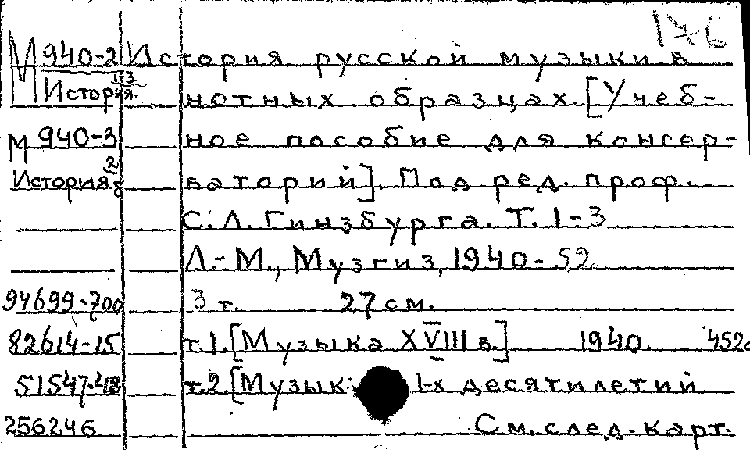 176
М 940-2 История русской музыки в
История. нотных образцах. [Учеб-
М 940-3 ное пособие для консер-
История ваторий]. Под ред. проф.
С. Л. Гинзбурга. Т. 1-3
Л.-М., Музгиз, 1940-52
94699-700 3 т. 27 см.
82614-15 т.1. [Музыка XVIII в.] 1940. 452с
51547-48 т.2 [Музык 1-х десятилетий
256246 См. след. карт.